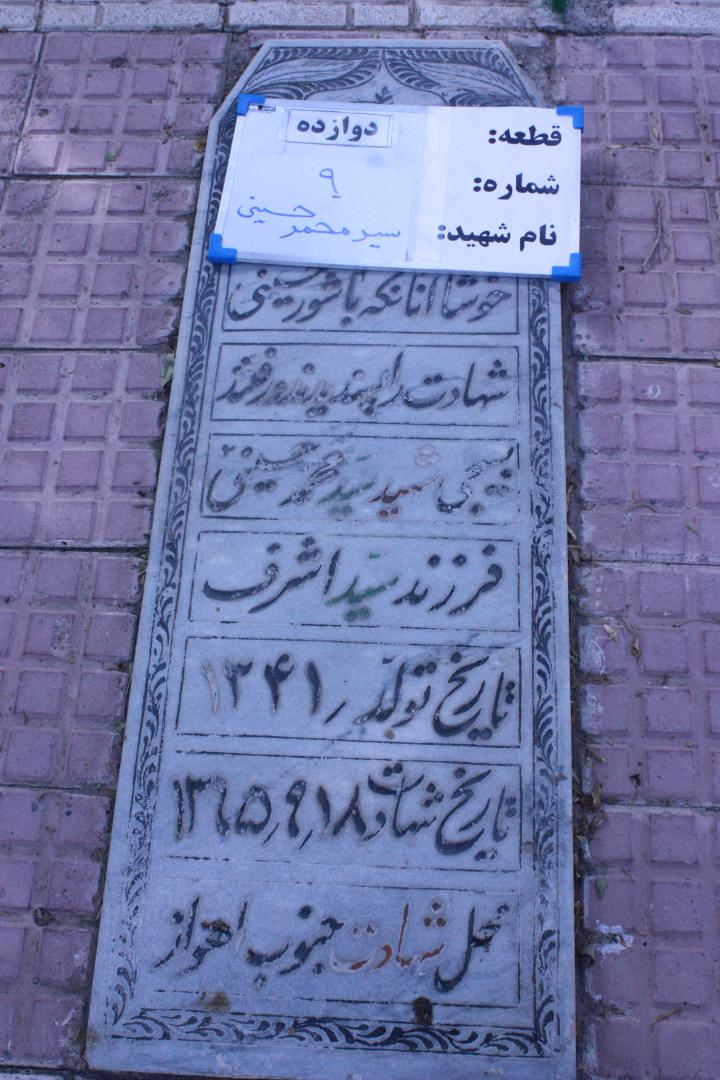 قطعه: دوازده
شماره: ۹
نام شهید: سید محمد حسینی
خوشا آنانکه با شور حسینی
شهادت را پسندیدند و رفتند
بسیجی شهید سید محمد حسینی
فرزند سید اشرف
تاریخ تولد ۱۳۴۱
تاریخ شهادت ۱۳۶۵٫۹٫۱۸
محل شهادت جنوب اهواز